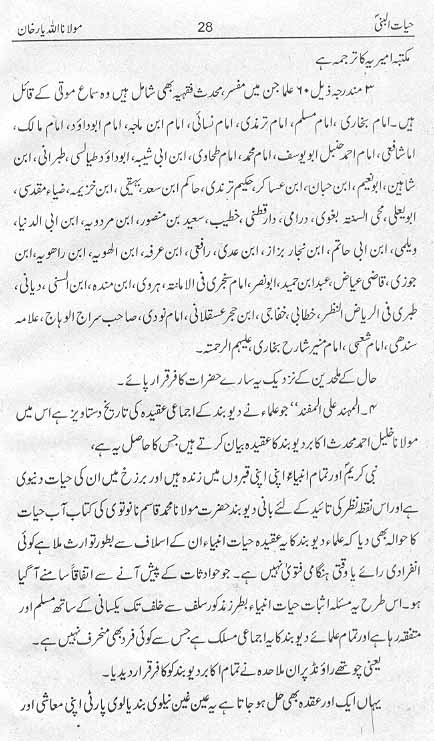 حیات النبیؐ 28 مولانا اللہ یار خان
مکتبہ امیریہ کا ترجمہ ہے
۳ مندرجہ ذیل ۶۰ علما جن میں مفسر، محدث فقہیہ بھی شامل ہیں وہ سماع موتی کے قائل
ہیں۔ امام بخاری، امام مسلم، امام ترمذی، امام نسائی، امام ابن ماجہ، امام ابوداؤد، امام مالک،
اما شافعی، امام احمد حنبل ابو یوسف، امام محمد، امام طحاوی، ابن ابی شیبہ، ابوداؤد طیالسی، طبرانی، ابن
شاہین، ابو نعیم، ابن حبان، ابن عساکر، حکیم ترمذی، حاکم ابن سعد، بہیقی، ابن خزیمہ، ضیاء مقدسی،
ابو یعلی، محی السنتہ بغوی، دارمی، دار قطنی، خطیب، سعید بن منصور، ابن مردویہ، ابن ابی الدنیا،
دیلمی، ابن ابی حاتم، ابن نجار بزاز، ابن عدی، رافعی، ابن عرفہ، ابن الھویہ، ابن راھویہ، ابن
جوزی، قاضی عیاض، عبدا بن حمید، ابو نصر، امام سنجری فی الامانتہ، ہروی، ابن مندہ، ابن السنی، دیانی،
طبری فی الریاض النظر، خطابی، خفاجی، ابن حجر عسقلانی، امام نودی، صاحب سراج الوہاج، علامہ
سندھی، امام شعبی، امام منیر شارح بخاری، علیہم الرحمتہ۔
حال کے ملحدین کے نزدیک یہ سارے حضرات کا فر قرار پائے۔
۴۔ المہند علی المفند" جو علمائے دیو بند کے اجماعی عقیدہ کی تاریخ دستاویز ہے اس میں
مولانا خلیل احمد محدث اکابر دیوبند کا عقیدہ بیان کرتے ہیں جس کا حاصل یہ ہے،
نبی کریمؐ اور تمام انبیاءؑ اپنی اپنی قبروں میں زندہ ہیں اور برزخ میں ان کی حیات دنیوی
ہے اور اس نقطہ نظر کی تائید کے لئے بانی دیو بند حضرت مولانا محمد قاسم نانوتوی کی کتاب آب حیات
کا حوالہ بھی دیا کہ علماء دیو بند کا یہ عقیدہ حیات انبیاء ان کے اسلاف سے بطور توارث ملا ہے کوئی
انفرادی رائے یا وقتی ہنگامی فتویٰ نہیں ہے۔ جو حوادثات کے پیش آنے سے اتفاقاً سامنے آ گیا
ہو۔ اس طرح یہ مسئلہ اثبات حیات انبیاء بطرز مذکور سلف سے خلف تک یکسانی کے ساتھ مسلم اور
متفقہ رہا ہے اور تمام علمائے دیو بند کا یہ اجماعی مسلک ہے جس سے کوئی فرد بھی منحرف نہیں ہے۔
یعنی چوتھے راؤنڈ پر ان ملاحدہ نے تمام اکابر دیوبند کو کافر قرار دیدیا۔
یہاں ایک اور عقدہ بھی حل ہو جاتا ہے یہ عین غین نیلوی بندیالوی پارٹی اپنی معاشی اور